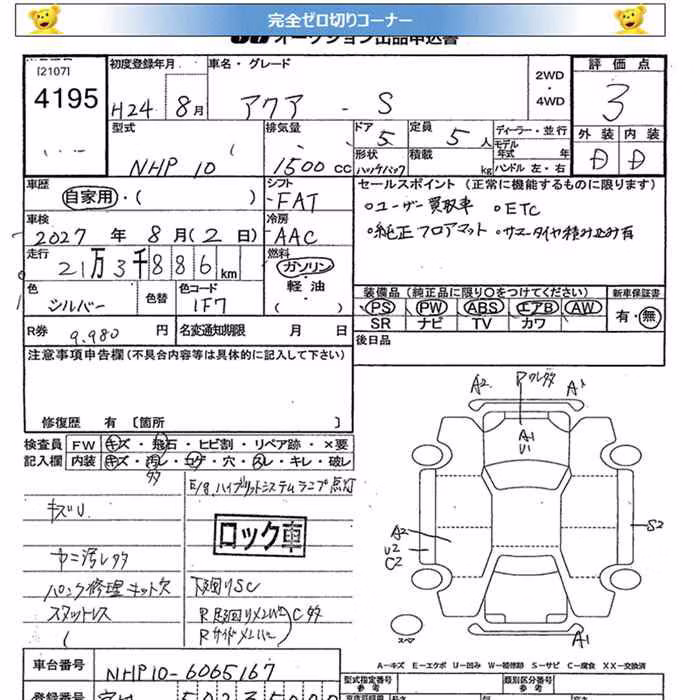 完全ゼロ切りコーナー
オークション出品申込書
[2107]
4195
初度登録年月
H24 8月
車名・グレード
アクア - S
2WD・4WD
評価点
3
外装 内装
D D
型式
NHP10
排気量
1500cc
ドア 5
定員 5人
形状
ハッチバック
積載 kg
ディーラー・並行
モデル年式 年
ハンドル 左・右
車歴
自家用・( )
シフト
FAT
セールスポイント (正常に機能するものに限ります)
○ユーザー買取車 ○ETC
○純正フロアマット ・サマータイヤ積み込み有
車検
2027年 8月(2日)
冷房
AAC
走行
21万3千886km
燃料
ガソリン
軽油
( )
色
シルバー
色替
色コード
1F7
装備品 (純正品に限り○をつけてください)
PS PW ABS エアB AW
SR ナビ TV カワ
新車保証書
有・無
R券 9.980円
名変通知期限 月 日
後日品
注意事項申告欄(不具合内容等は具体的に記入して下さい)
修復歴 有 〔箇所 〕
検査員記入欄
FW キズ・飛石・ヒビ割・リペア跡・×要
内装 キズ・汚レ・コゲ・穴・スレ・キレ・破レ
多
E/g.ハイブリッドシステムランプ点灯
キズU
ロック車
内ニ汚レタタ
パンク修理キット欠
下廻りSC
スタットレス
R足廻りメンバC多
RサイドメンバC
A2 Pワレ多 A1
A1
U1
A2
U2
C2
S2
スペア
A1
A-キズ E-エクボ U-凹み W-補修跡 S-サビ C-腐食 XX-交換済
車台番号
NHP10-6065167
型式指定番号
参考
類別区分番号
参考
登録番号
5023500